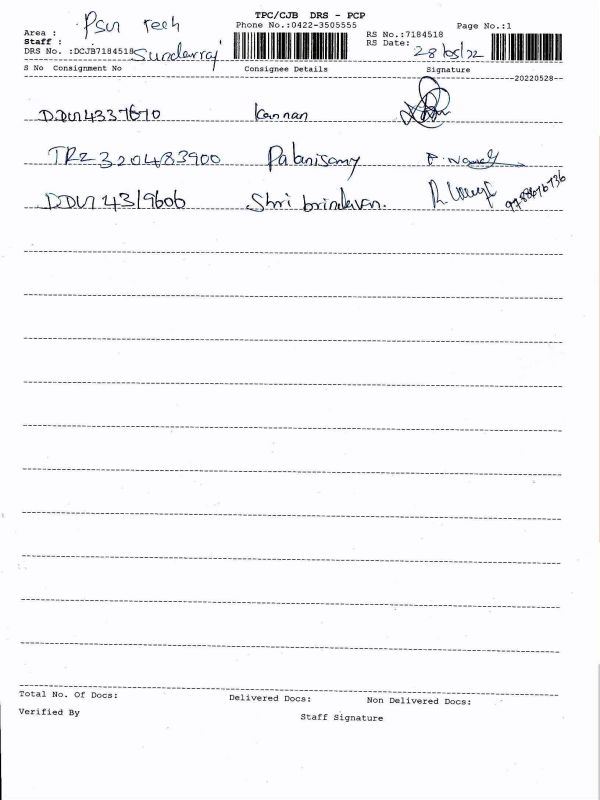 TPC/CJB DRS - PCP
Phone No.:0422-3505555
Page No.:1
Area : Psn Tech
Staff : Sundarraj
DRS No. :DCJB7184518
RS No.:7184518
RS Date: 28/05/22
S No Consignment No Consignee Details Signature
--20220528--
Kannan
TRZ 320483900 Palanisamy
DDU 4319606 Shri brindavan.
Total No. Of Docs: Delivered Docs: Non Delivered Docs:
Verified By Staff Signature